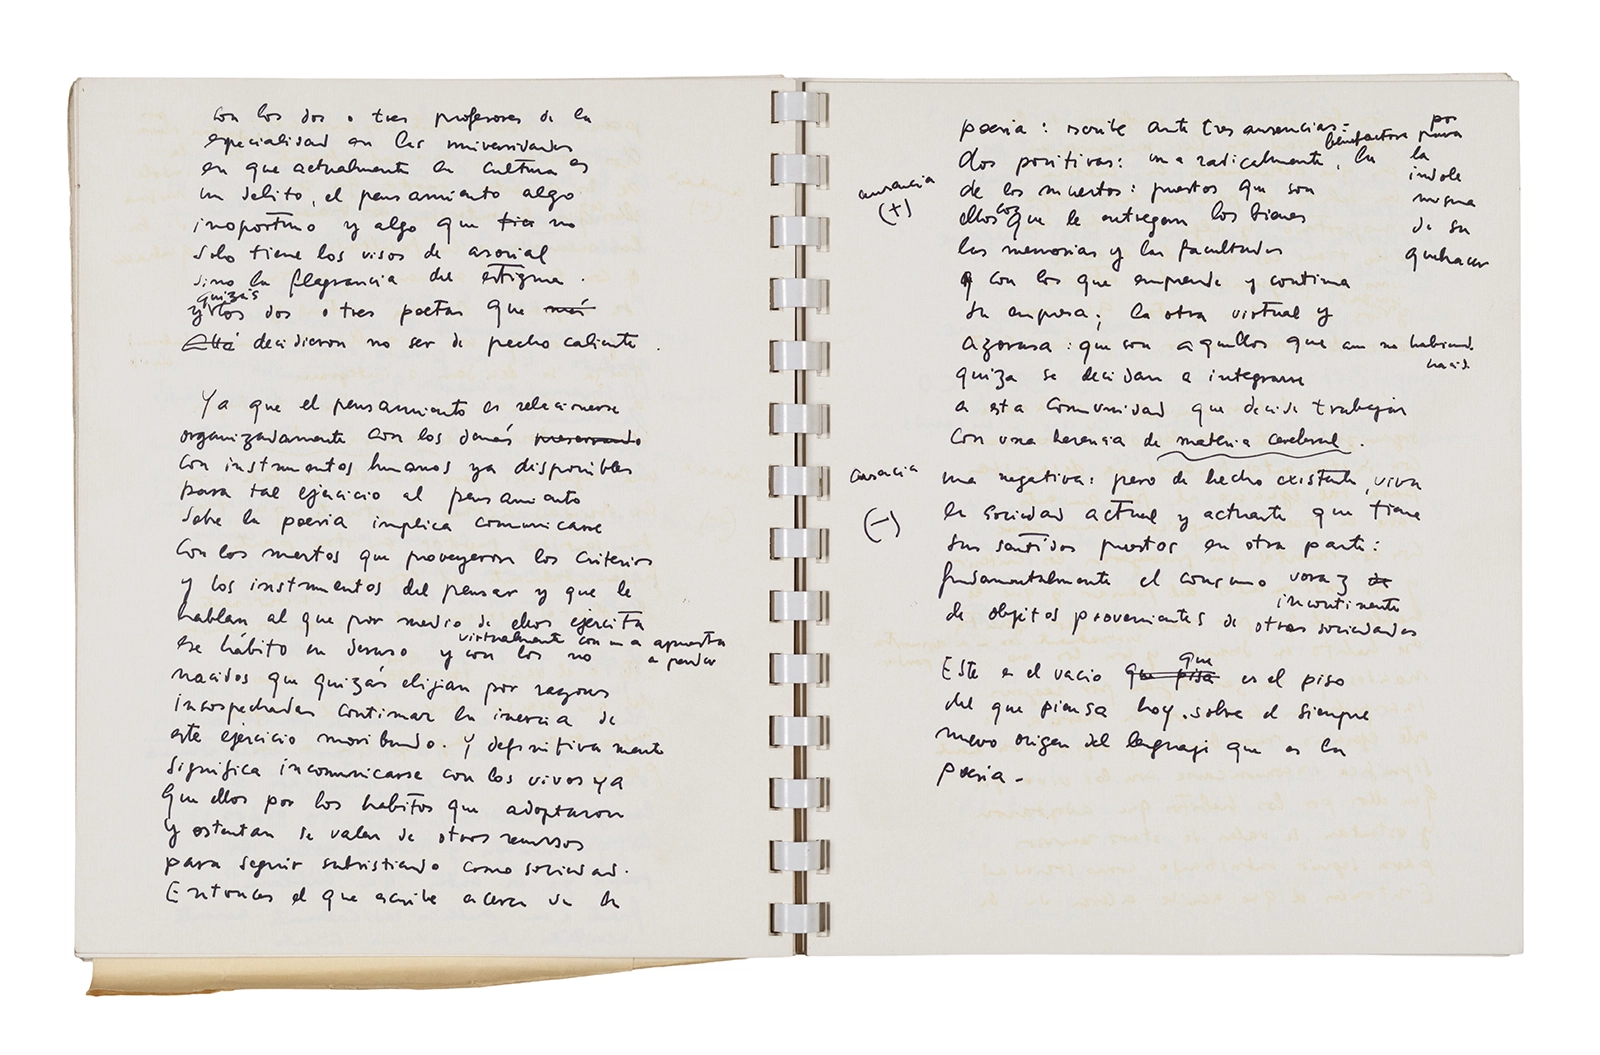 con los dos o tres profesores de la
especialidad en las universidades
en que actualmente la cultura es
un delito, el pensamiento algo
inoportuno y algo que no
solo tiene los visos de asocial
sino la flagrancia del estigma.
quizás
y los dos o tres poetas que más
allá decidieron no ser de pecho caliente.
Ya que el pensamiento es relacionarse
organizadamente con los demás preservando
con instrumentos humanos ya disponibles
para tal ejercicio al pensamiento
sobre la poesia implica comunicarse
con los muertos que proveyeron los criterios
y los instrumentos del pensar y que le
hablan al que por medio de ellos ejercita
virtualmente con una apuesta
ese hábito en desuso y con los no a perder
nacidos que quizás elijan por razones
insospechadas continuar la inercia de
este ejercicio moribundo. Y definitivamente
significa incomunicarse con los vivos ya
que ellos por los habitos que adoptaron
y ostentan se valen de otros recursos
para seguir subsistiendo como sociedad.
Entonces el que escribe acerca de la
poesia: escribe ante tres ausencias:
por
benefactora para
dos positivas: una radicalmente, la
la
índole
misma
de su
quehacer
ausencia
(+)
de los muertos: puestos que son
ellos los que le entregan los bienes
las memorias y las facultades
con los que emprende y continua
su empresa; la otra virtual y
azarosa: que son aquellos que aun no habiendo
nacido
quiza se decidan a integrarse
a esta comunidad que decide trabajar
con una herencia de materia cerebral.
ausencia
(-)
una negativa: pero de hecho existente, viva
la sociedad actual y actuante que tiene
sus sentidos puestos en otra parte:
fundamentalmente el consumo voraz de
incontinente
de objetos provenientes de otras sociedades
que
Este es el vacio que pisa es el piso
del que piensa hoy. sobre el siempre
nuevo origen del lenguaje que es la
poesia-